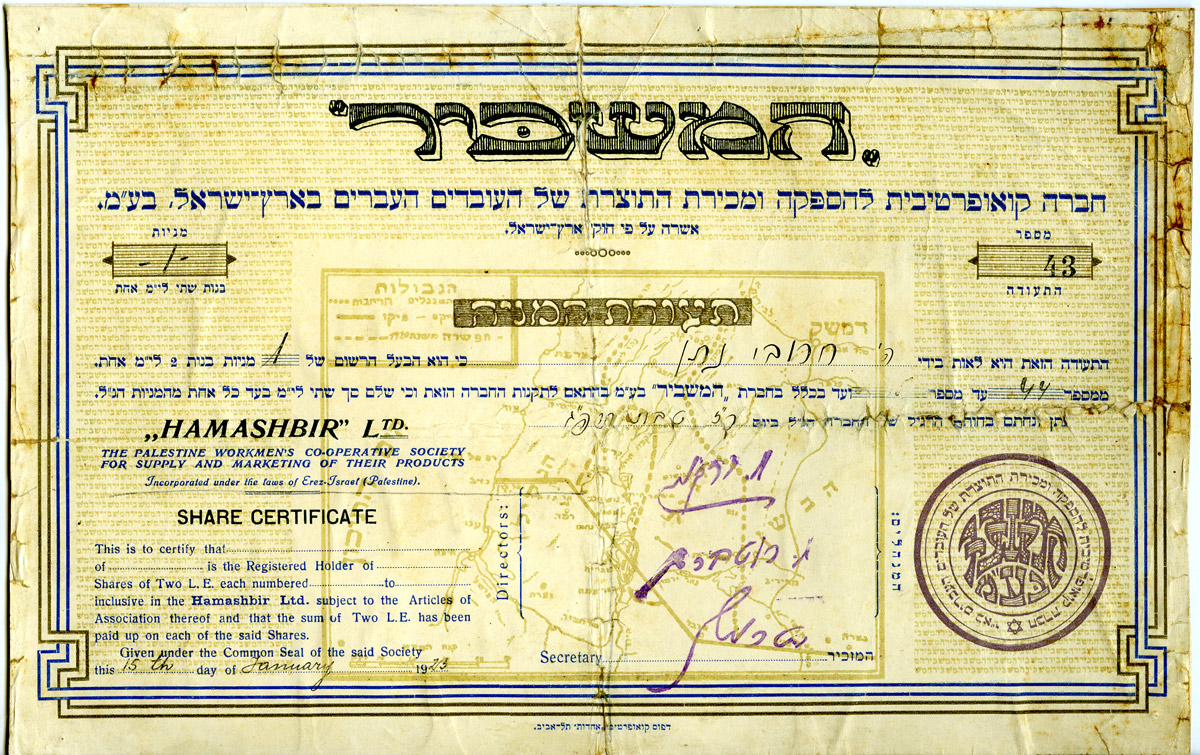 „המשביר”
חברה קואופרטיבית להספקה ומכירת התוצרת של העובדים העברים בארץ־ישראל, בע״מ.
אשרה על פי חוקי ארץ־ישראל.
מספר
43
התעודה
מניות
-1-
בנות שתי לי״מ אחת
תעודת המניה
התעודה הזאת היא לאות בידי ה׳ חרובי נתן כי הוא הבעל הרשום של 1 מניות בנות 2 לי״מ אחת.
ממספר 44 עד מספר ועד בכלל בחברת „המשביר” בע״מ בהתאם לתקנות החברה הזאת וכי שלם סך שתי לי״מ בעד כל אחת מהמניות הנ״ל.
נתן ונחתם בחותם הרגיל של החברה הנ״ל ביום כ״ז טבת תרפ״ג
„HAMASHBIR” LTD.
THE PALESTINE WORKMEN'S CO-OPERATIVE SOCIETY
FOR SUPPLY AND MARKETING OF THEIR PRODUCTS
Incorporated under the laws of Erez-Israel (Palestine).
SHARE CERTIFICATE
This is to certify that
of is the Registered Holder of
Shares of Two L.E. each numbered to
inclusive in the Hamashbir Ltd. subject to the Articles of
Association thereof and that the sum of Two L.E. has been
paid up on each of the said Shares.
Given under the Common Seal of the said Society
this 15th day of January 1923
Directors:
המנהלים:
Secretary המזכיר
חברה קואופרטיבית להספקה ומכירת התוצרת של העובדים העברים בא״י
המשביר
בע״מ
הגבולות
דמשק
דפוס קואופרטיבי „אחדות” תל־אביב.